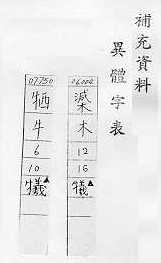 補充資料
異體字表
木
12
16
犧▲
07750
牺
牛
6
10
犧▲